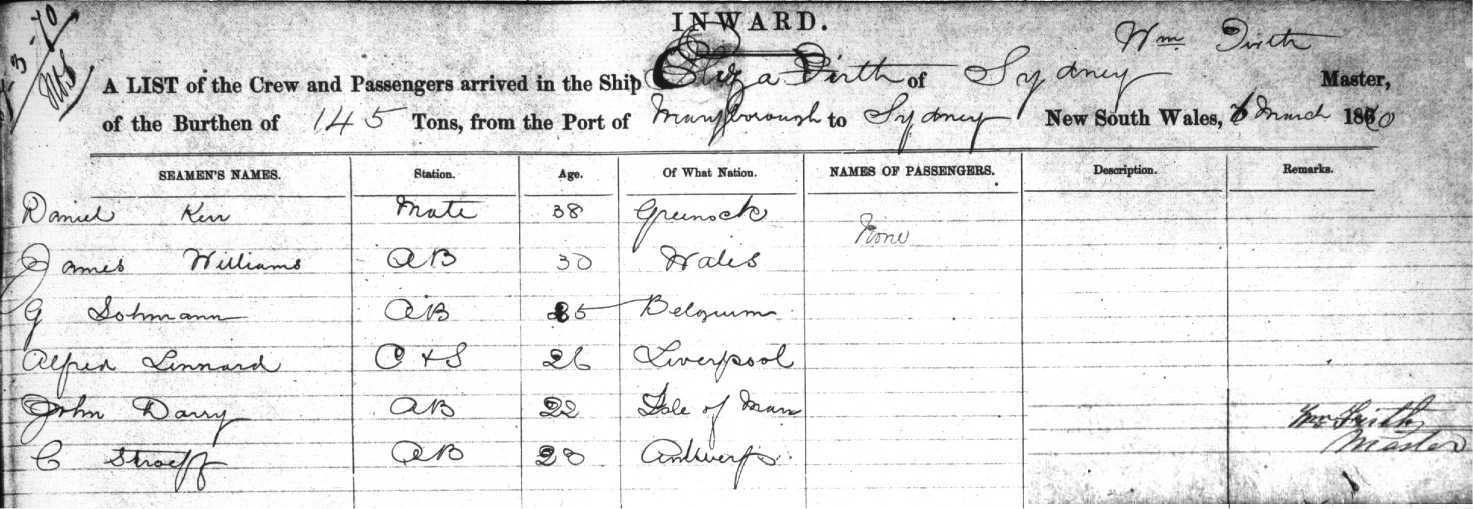 INWARD.
Wm Firth
A LIST of the Crew and Passengers arrived in the Ship Eliza Firth of Sydney Master,
of the Burthen of 145 Tons, from the Port of Maryborough to Sydney New South Wales, 6 March 1870
SEAMEN'S NAMES. Station. Age. Of What Nation. NAMES OF PASSENGERS. Description. Remarks.
Daniel Kerr Mate 38 Greenock
None
James Williams AB 30 Wales
G Sohmann AB 25 Belgium
Alfred Linnard C & S 26 Liverpool
John Darry AB 22 Isle of Man
Wm Firth
C Stroeff AB 28 Antwerp
Master